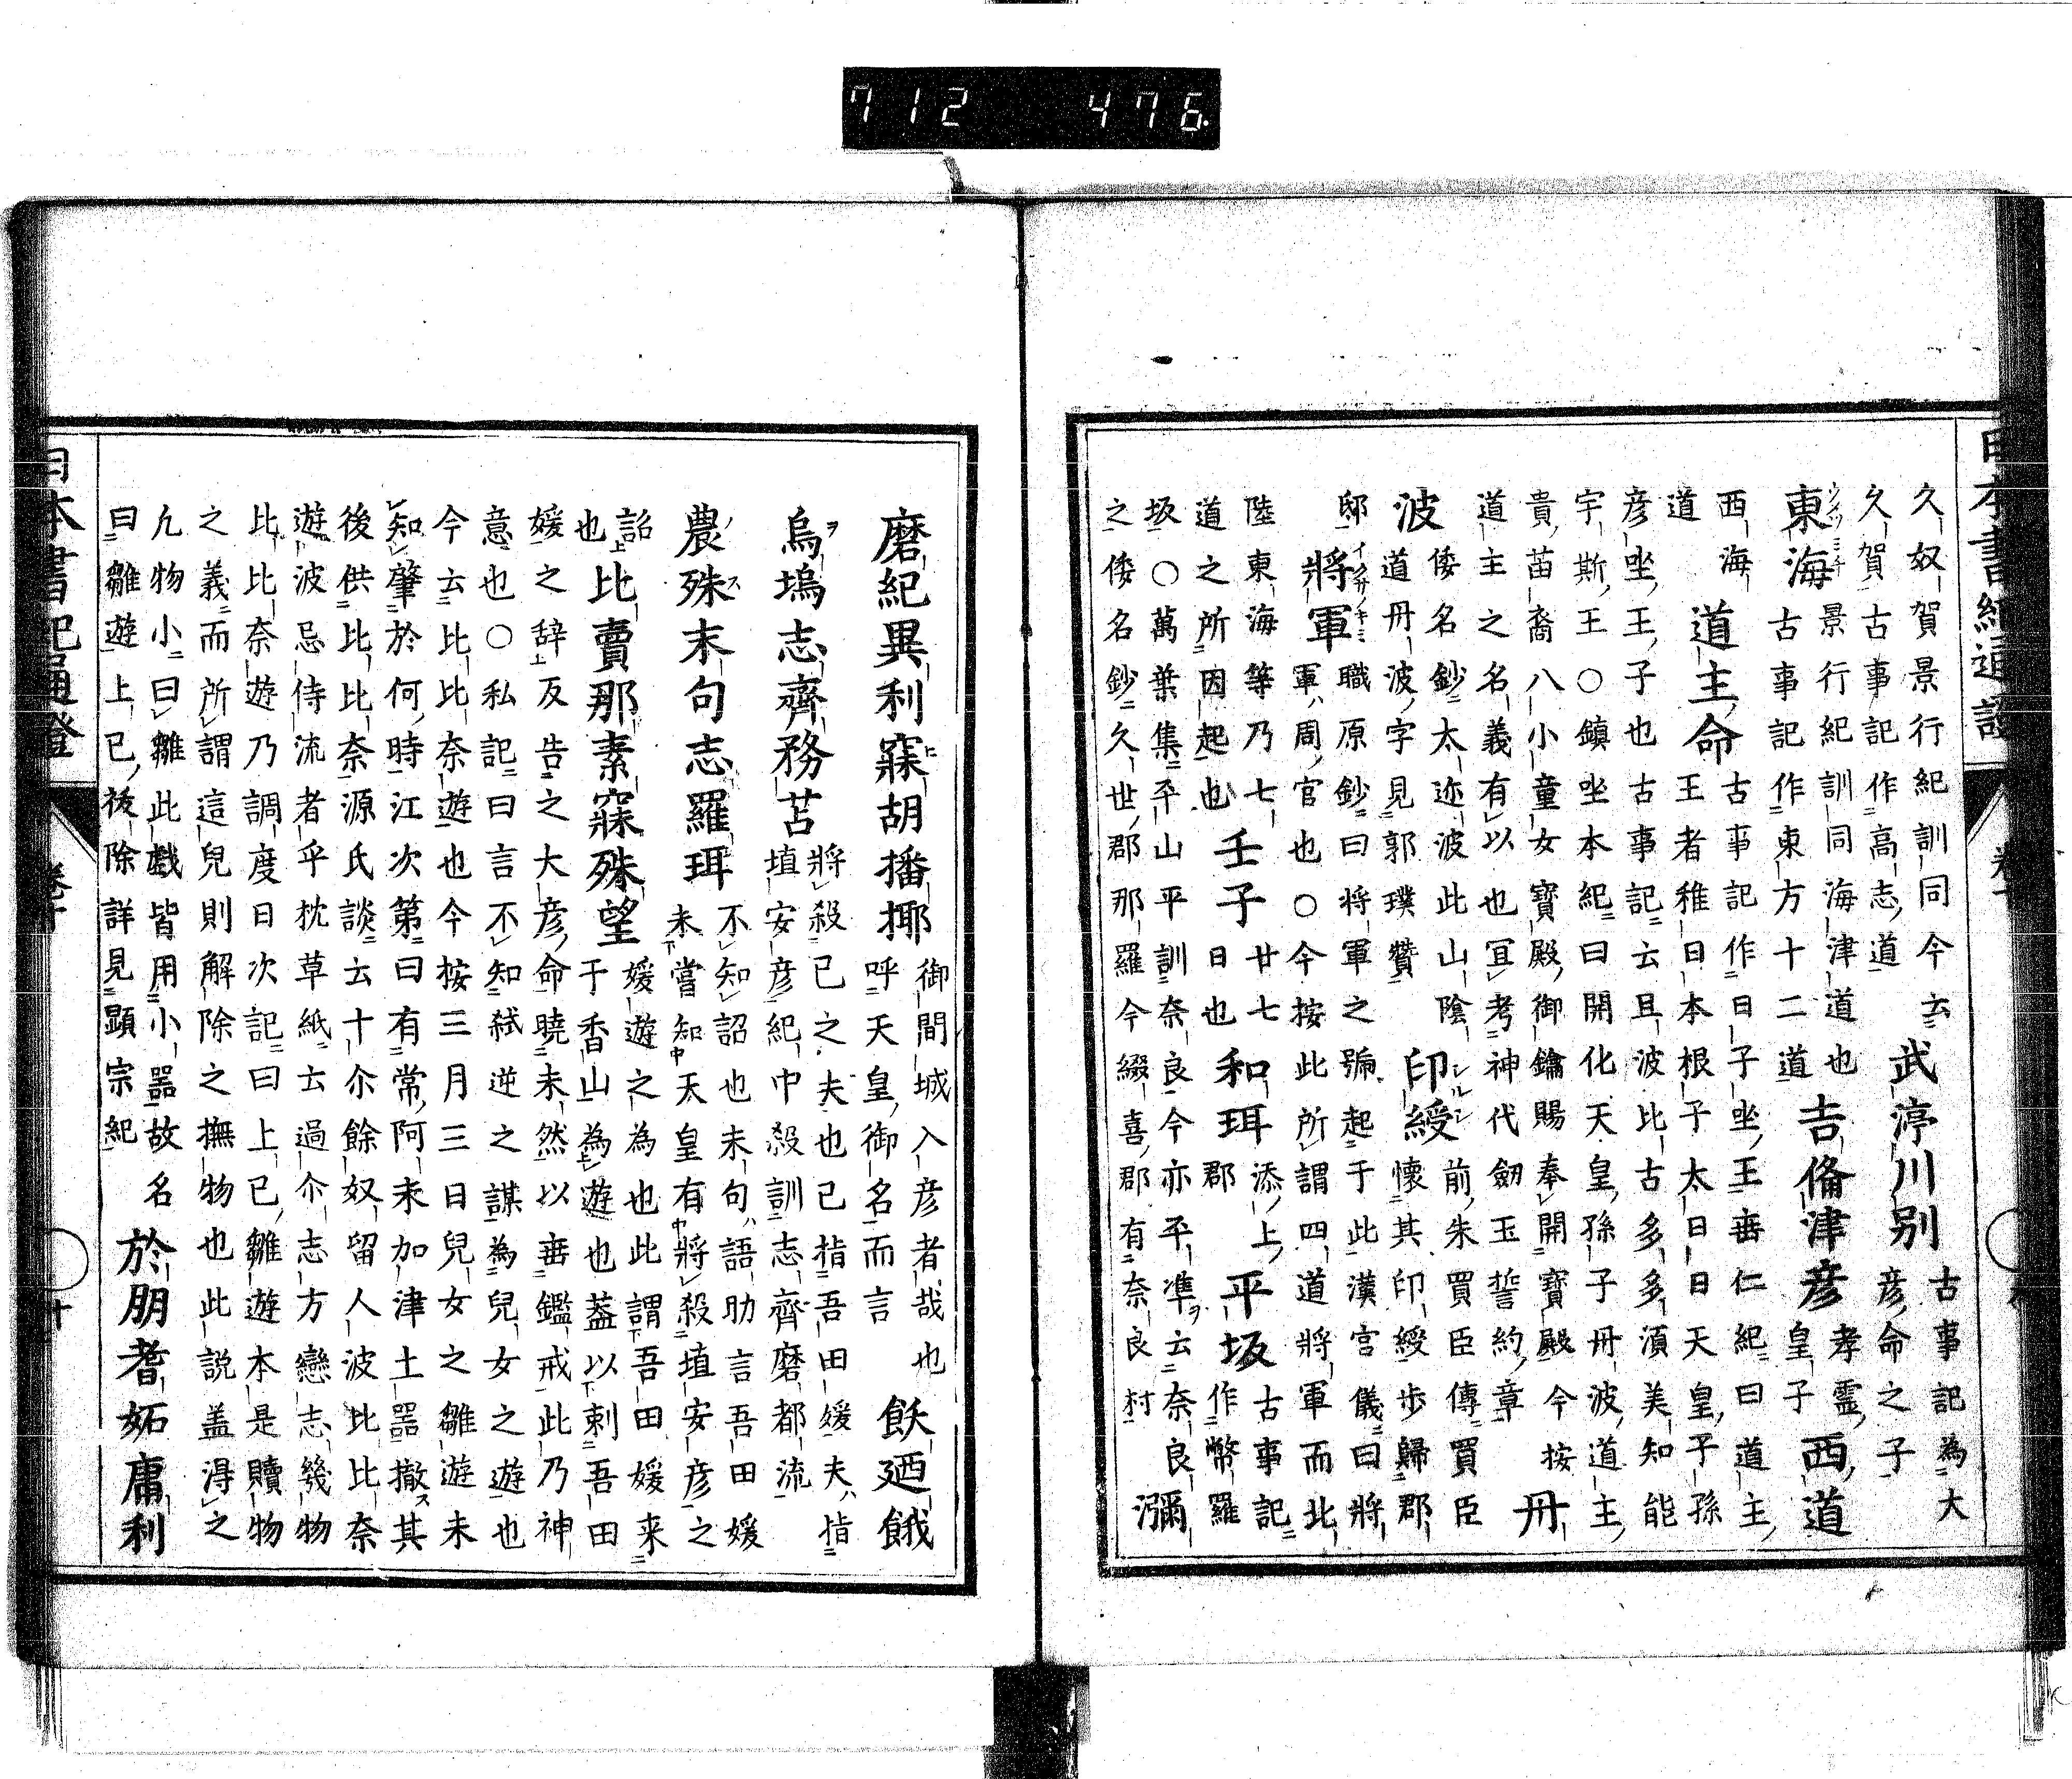 712 476.
日本書紀通證
久奴賀景行紀訓同今云武渟川別古事記為大
久賀古事記作高志道彦命之子
東海景行紀訓同海津道也吉備津彦孝霊皇子西道
古事記作東方十二道
西海道主命古事記作日子坐王垂仁紀曰道主
道王者稚日本根子太日日天皇子孫
彦坐王子也古事記云旦波比古多多須美知能
宇斯王○鎮坐本紀曰開化天皇孫子丹波道主
貴苗裔八小童女寶殿御鑰賜奉開寶殿今按丹
道主之名義有以也冝考神代劔玉誓約章
波倭名鈔太迩波此山陰印綬前朱買臣傳買臣
道丹波字見郭璞贊懷其印綬歩歸郡
邸將軍職原鈔曰将軍之號起于此漢官儀曰將
軍周官也○今按此所謂四道將軍而北
陸東海等乃七壬子廿七日也和珥添上郡平坂古事記
道之所因起也作幣羅
坂○萬葉集平山平訓奈良今亦平準云奈良瀰
之倭名鈔久世郡那羅今綴喜郡有奈良村
磨紀異利寐胡播揶御間城入彦者哉也飫廼餓
呼天皇御名而言
烏塢志齊務苫將殺己之夫也己指吾田媛夫指
埴安彦紀中殺訓志齊磨都流
農殊末句志羅珥不知詔也末句語助言吾田媛
未嘗知天皇有將殺埴安彦之
詔也比賣那素寐殊望媛遊之為也此謂吾田媛来
于香山為遊也蓋以刺吾田
媛之辞反告之大彦命曉未然以垂鑑戒此乃神
意也○私記曰言不知弑逆之謀為兒女之遊也
今云比比奈遊也今按三月三日兒女之雛遊未
知肇於何時江次第曰有常阿末加津土器撤其
後供比比奈源氏談云十尒餘奴留人波比比奈
遊波忌侍流者乎枕草紙云過尒志方戀志幾物
比比奈遊乃調度日次記曰上巳雛遊本是贖物
之義而所謂這兒則解除之撫物也此説盖得之
凢物小曰雛此戯皆用小器故名於朋耆妬庸利
曰雛遊上巳祓除詳見顕宗紀
日本書紀通證
卷十
十